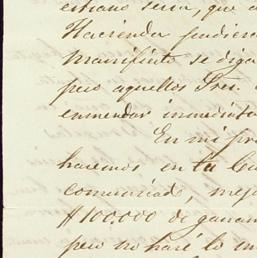 estraño seria, que a
Hacienda pudiera
manifiesto se diga
pero aquellos Sres.
enmendar inmediata
En mi pro
hacemos en tu Cu
comunicado, mejo
$100000 de ganan
pero no haré lo em